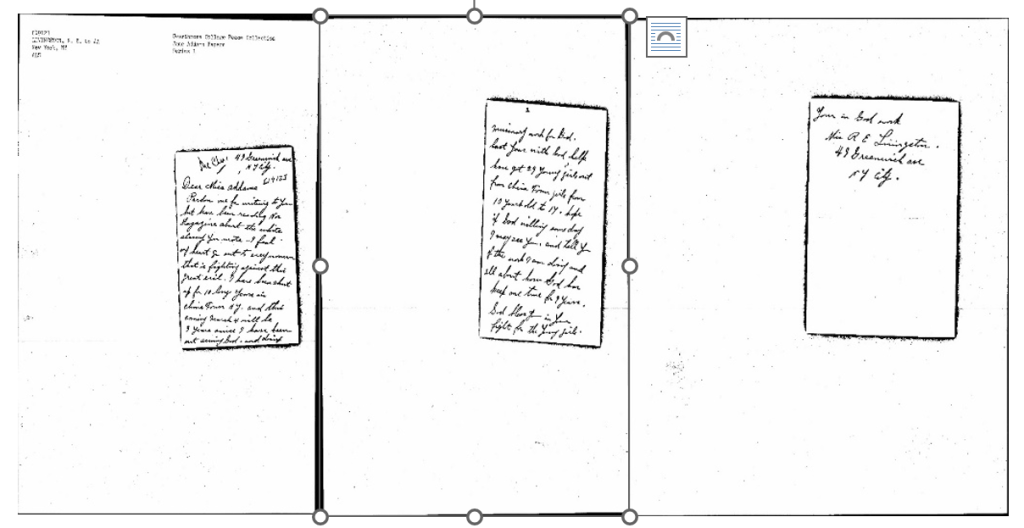 LIVINGSTON, R. E. to JA
New York, NY
Swarthmore College Peace Collection
Jane Addams Papers
Series 1
49 Greenwich ave
N Y City.
Dear Miss Addams
Pardon me for writing to You
but have been reading the
Magazine about the white
slavery You wrote - I feel
my heart go out to every woman
that is fighting against this
great evil. I have been shut
up for 10 long Years in
China Town N Y. and this
coming March 4 will be
9 Years since I have been
out serving God. and doing
missionary work for God.
last Year with God help
have got 29 Young girls out
from China Town girls from
10 Years old to 17. hope
if God willing some day
I may see You. and tell You
of the work I am doing and
all about how God has
keep me true for 9 Years.
God bless You in Your
fight for the Young girls.
Your in God work
Miss R E Livingston.
49 Greenwich ave
N Y City.